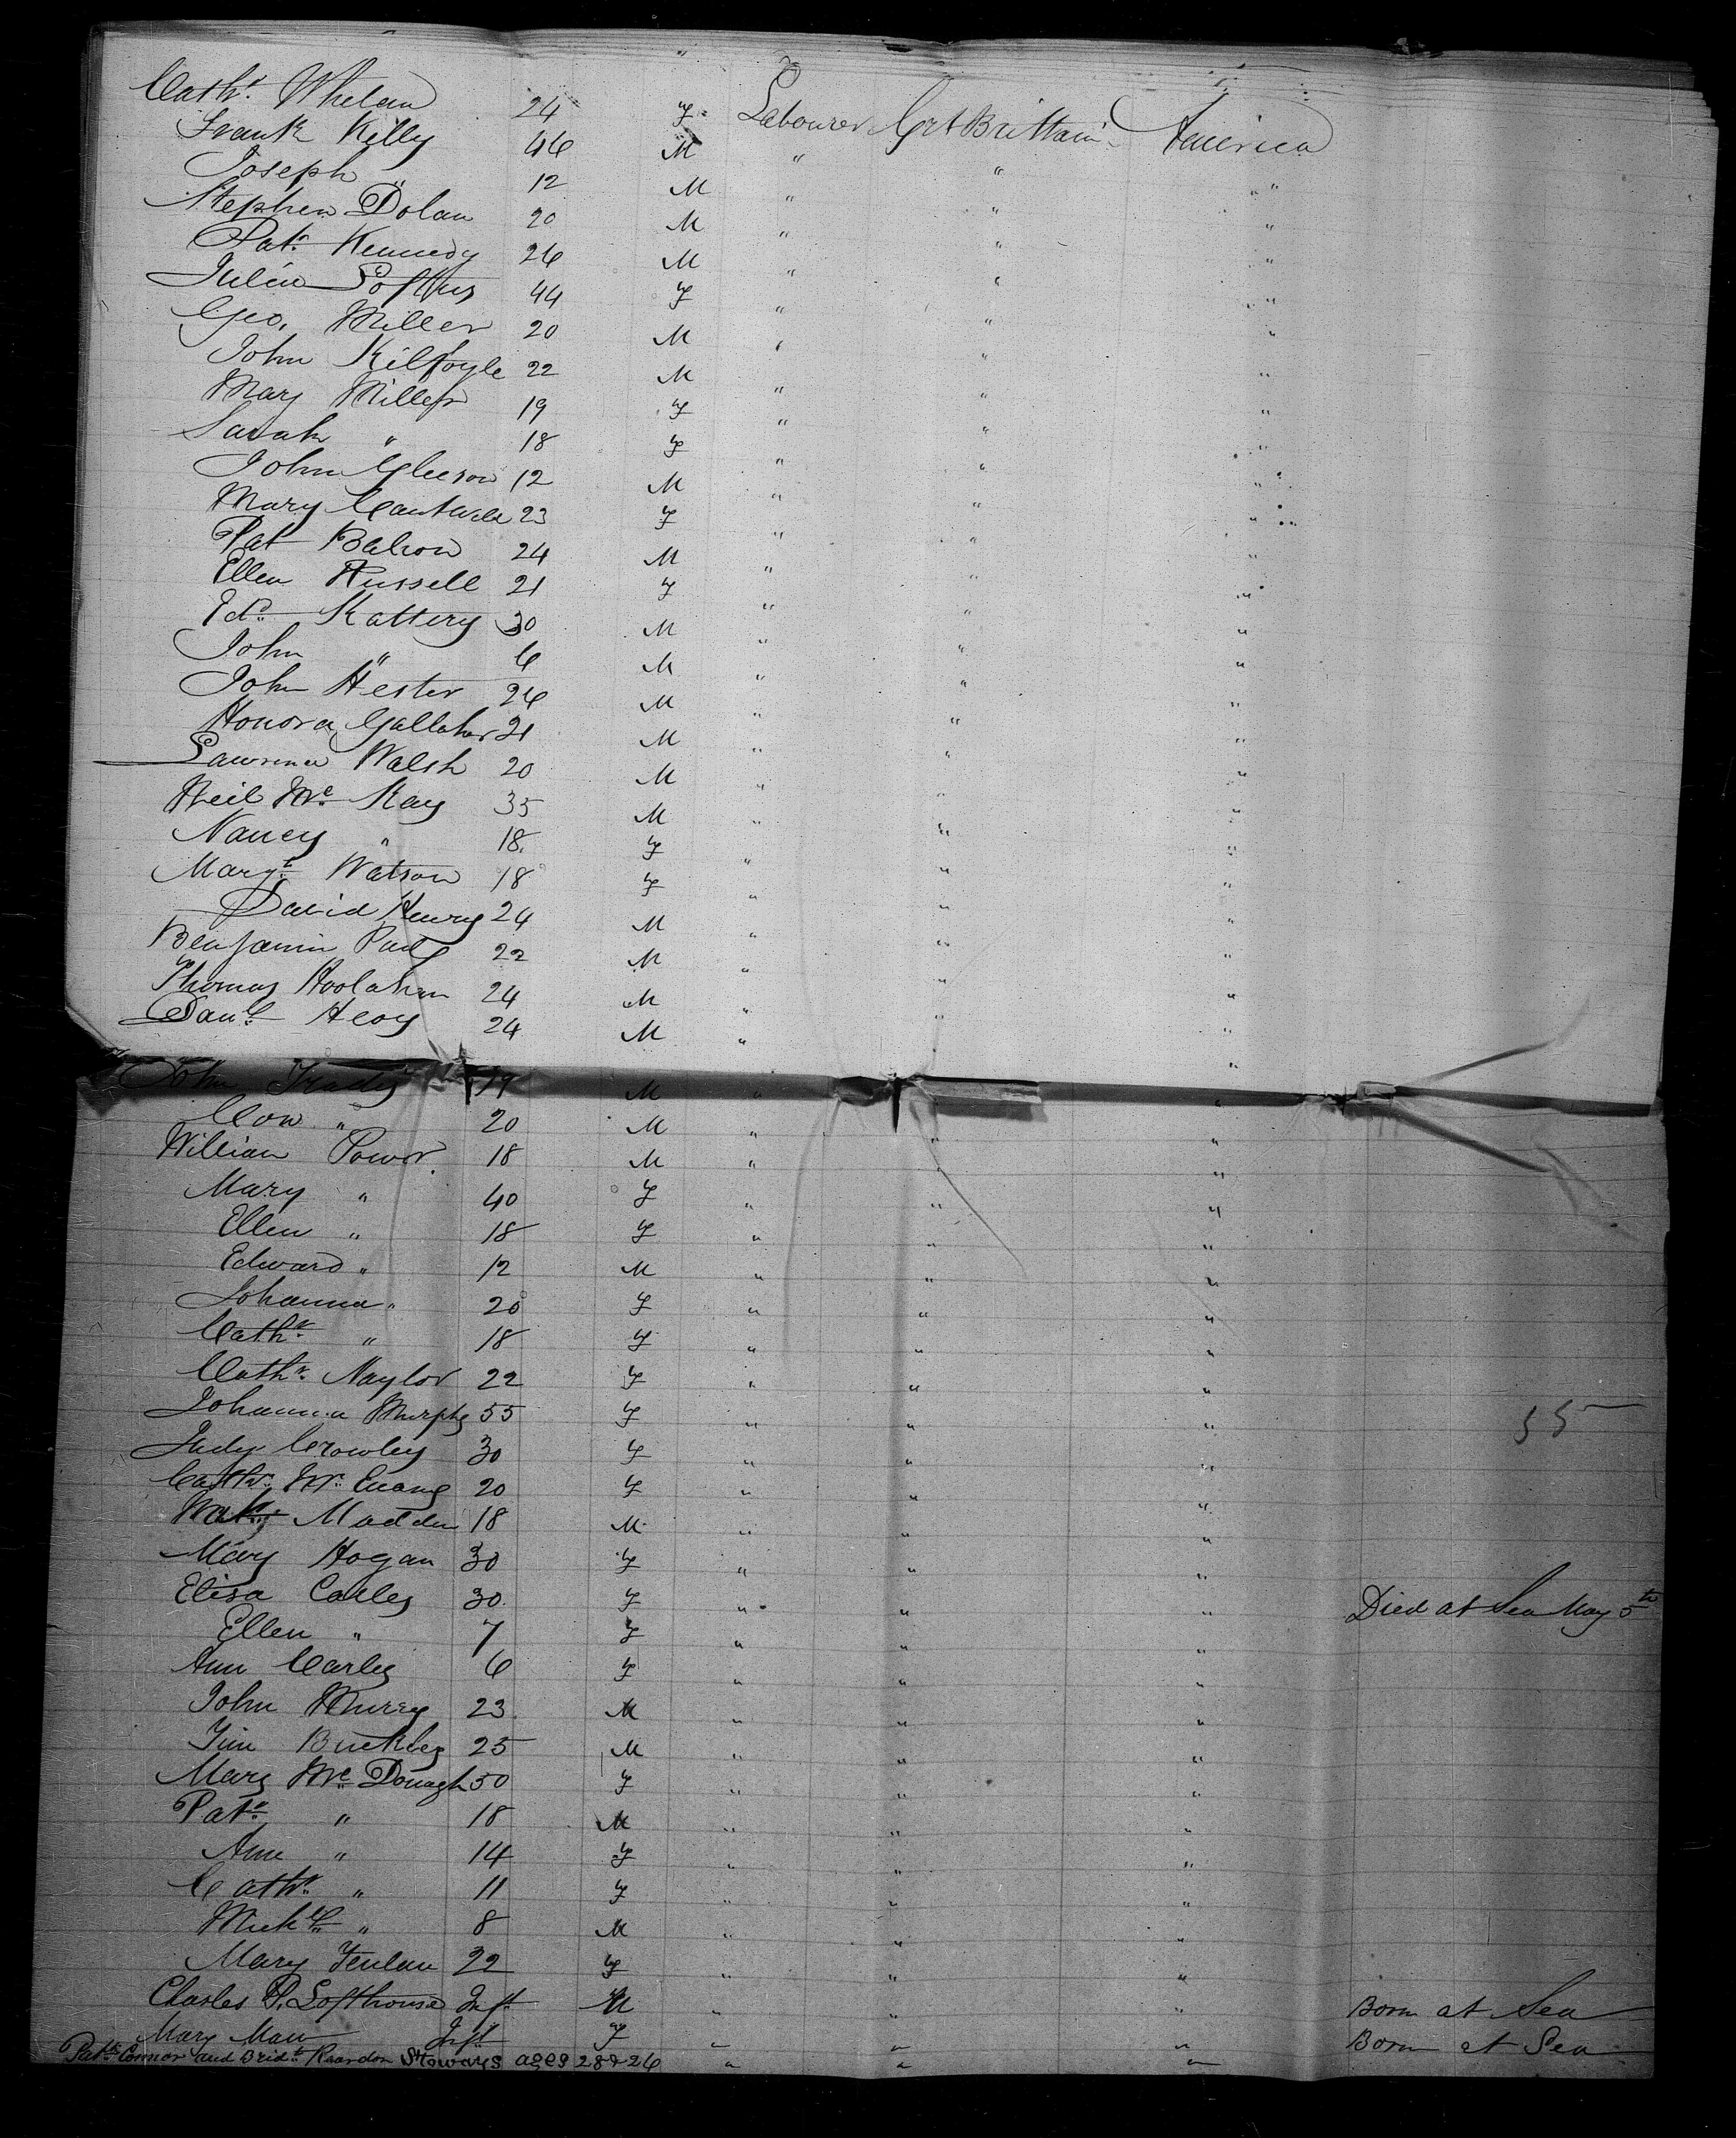 Cathe. Whelan 24 F Labourer Grt Brittain America
Frank Killy 46 M " " "
Joseph " 12 M " " "
Stephen Dolan 20 M " " "
Patk. Kennedy 26 M " " "
Julia Loftus 44 F " " "
Geo. Miller 20 M " " "
John Kilfoyle 22 M " " "
Mary Miller 19 F " " "
Sarah " 18 F " " "
John Gleeson 12 M " " "
Mary Cantwell 23 F " " "
Pat 24 M " " "
Ellen Russell 21 F " " "
Edd. Kattery 30 M " " "
John " 6 M " " "
John Hester 26 M " " "
Honora Gallaher 21 M " " "
Lawrence Walsh 20 M " " "
Neil Mc Kay 35 M " " "
Nancy " 18 F " " "
Margt. Watson 18 F " " "
David Henry 24 M " " "
Benjamin 22 M " " "
Thomas Hoolahan 24 M " " "
Danl. 24 M " " "
John M " " "
Con " 20 M " " "
William Power 18 M " " "
Mary " 40 F " " "
Ellen " 18 F " " "
Edward " 12 M " " "
Johanna " 20 F " " "
Cathe. " 18 F " " "
Cathe. Naylor 22 F " " "
Johanna Murphy 55 F " " " 55
Judy Crowley 30 F " " "
Cathe. Mc 20 F " " "
Madden 18 M " " "
Mary Hogan 30 F " " "
Elisa Calley 30 F " " " Died at Sea May 5th
Ellen " 7 F " " "
Ann Carley 6 F " " "
John Murry 23 M " " "
Tim Buckley 25 M " " "
Mary Mc Donagh 50 F " " "
Patk. " 18 M " " "
Ann " 14 F " " "
Cathe. " 11 F " " "
Michl. " 8 M " " "
Mary Fenlan 22 F " " "
Charles P. Lofthouse Inft M " " " Born at Sea
Mary Maw Inft F " " " Born at Sea
Patk. Connor and Bridt. Reardon Stoways ages 28 & 26 " " "